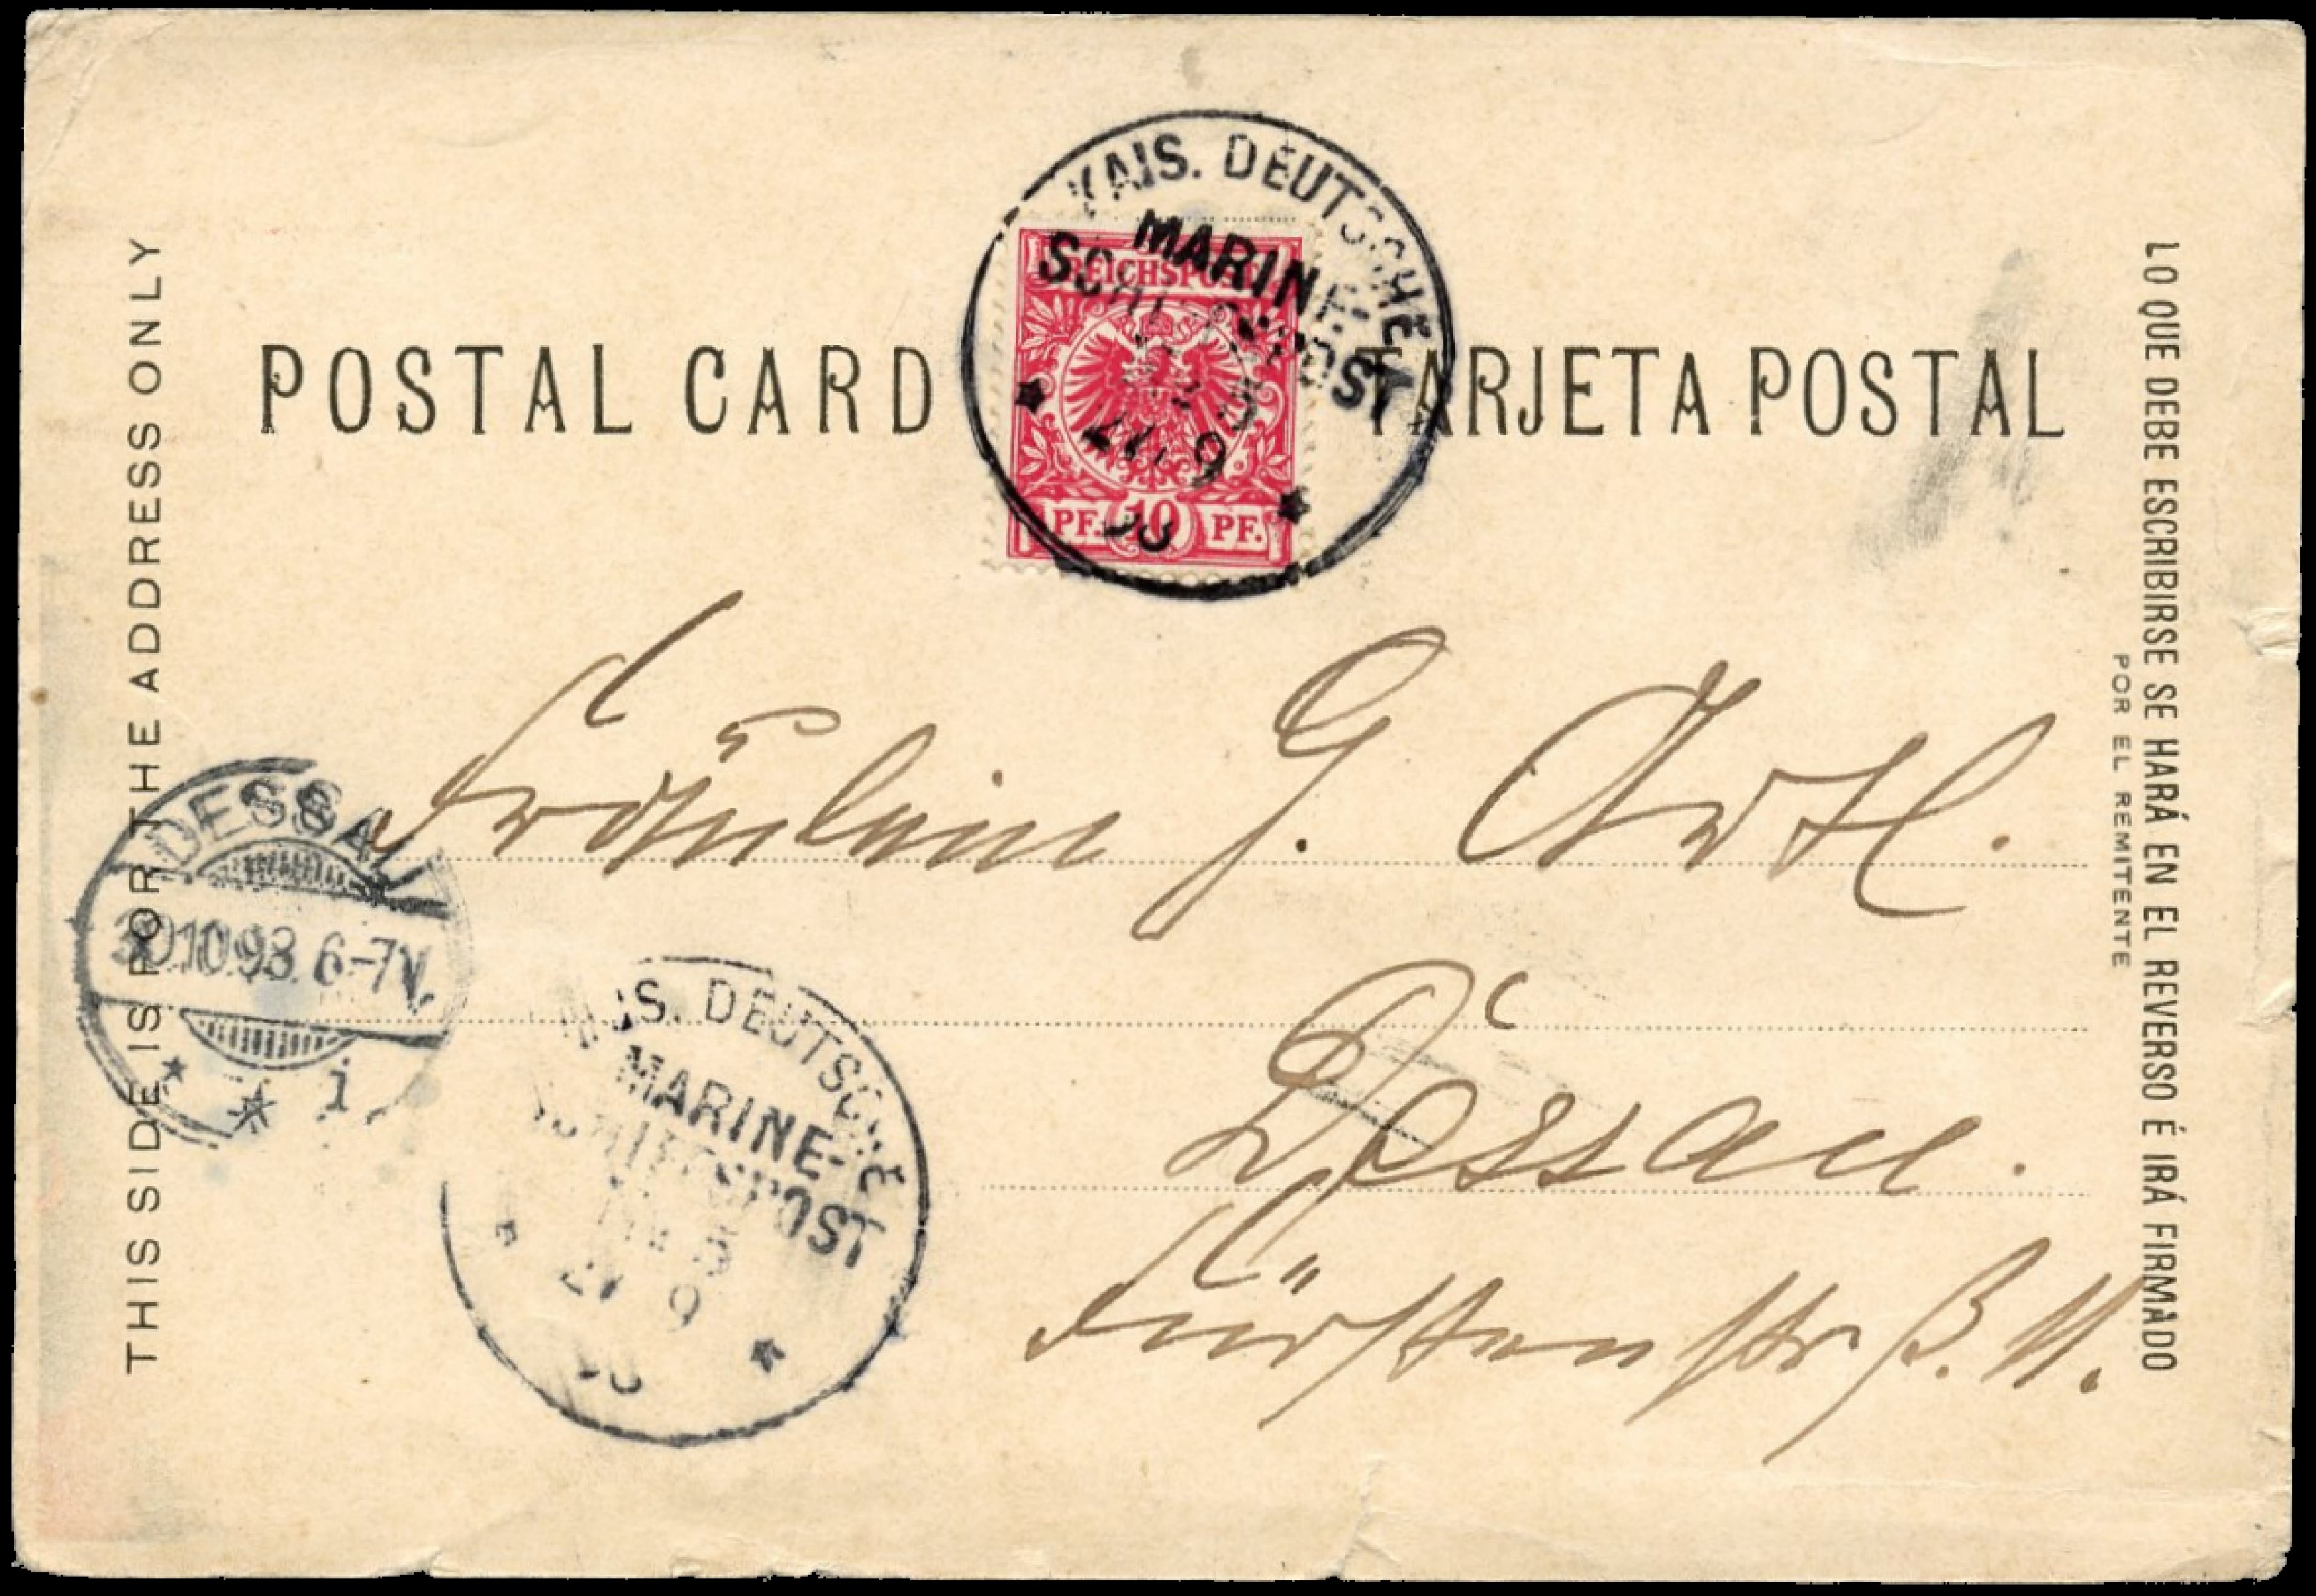 KAIS. DEUTSCHE
MARINE-
SCHIFFSPOST
27. 9
98
REICHSPOST
PF. 10 PF.
POSTAL CARD
TARJETA POSTAL
THIS SIDE IS FOR THE ADDRESS ONLY
LO QUE DEBE ESCRIBIRSE SE HARÁ EN EL REVERSO É IRÁ FIRMADO
POR EL REMITENTE
Fräulein G.
DESSAU
30 10 98 6-7V.
1
Dessau.
KAIS. DEUTSCHE
MARINE-
SCHIFFSPOST
27 9
98
Fürstenstr.